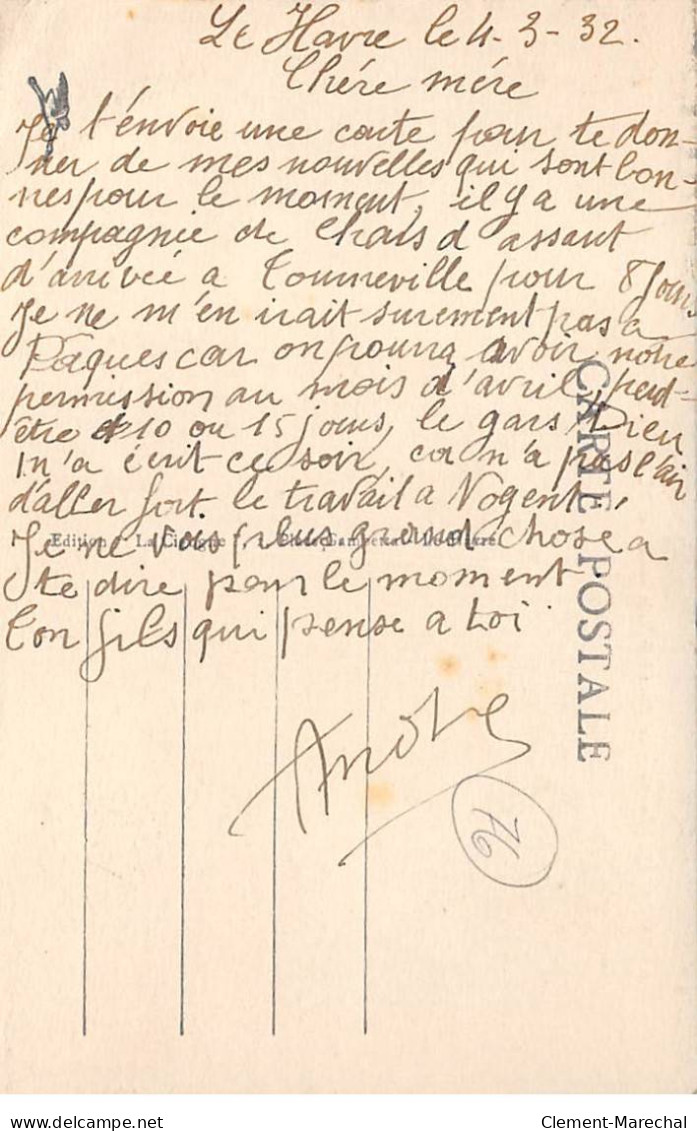 Le Havre le 4-3-32.
Chére mére
Je t'énvoie une carte pour te don-
ner de mes nouvelles qui sont bon-
nes pour le moment, il y a une
compagnie de Chars d assaut
d'arrivée a Tourneville pour 8 Jours
Je ne m'en irait surement pas a
Pâques car on pourra avoir notre
permission au mois d'avril, peut-
être 10 ou 15 jours, le gars Dieu
m'a écrit ce soir, ca n'a pas l'air
d'aller fort le travail a Nogent,
Je ne vois plus grand chose a
te dire pour le moment
Ton fils qui pense a toi
André
76
CARTE POSTALE
Edition La Cigogne
Clement-Marechal